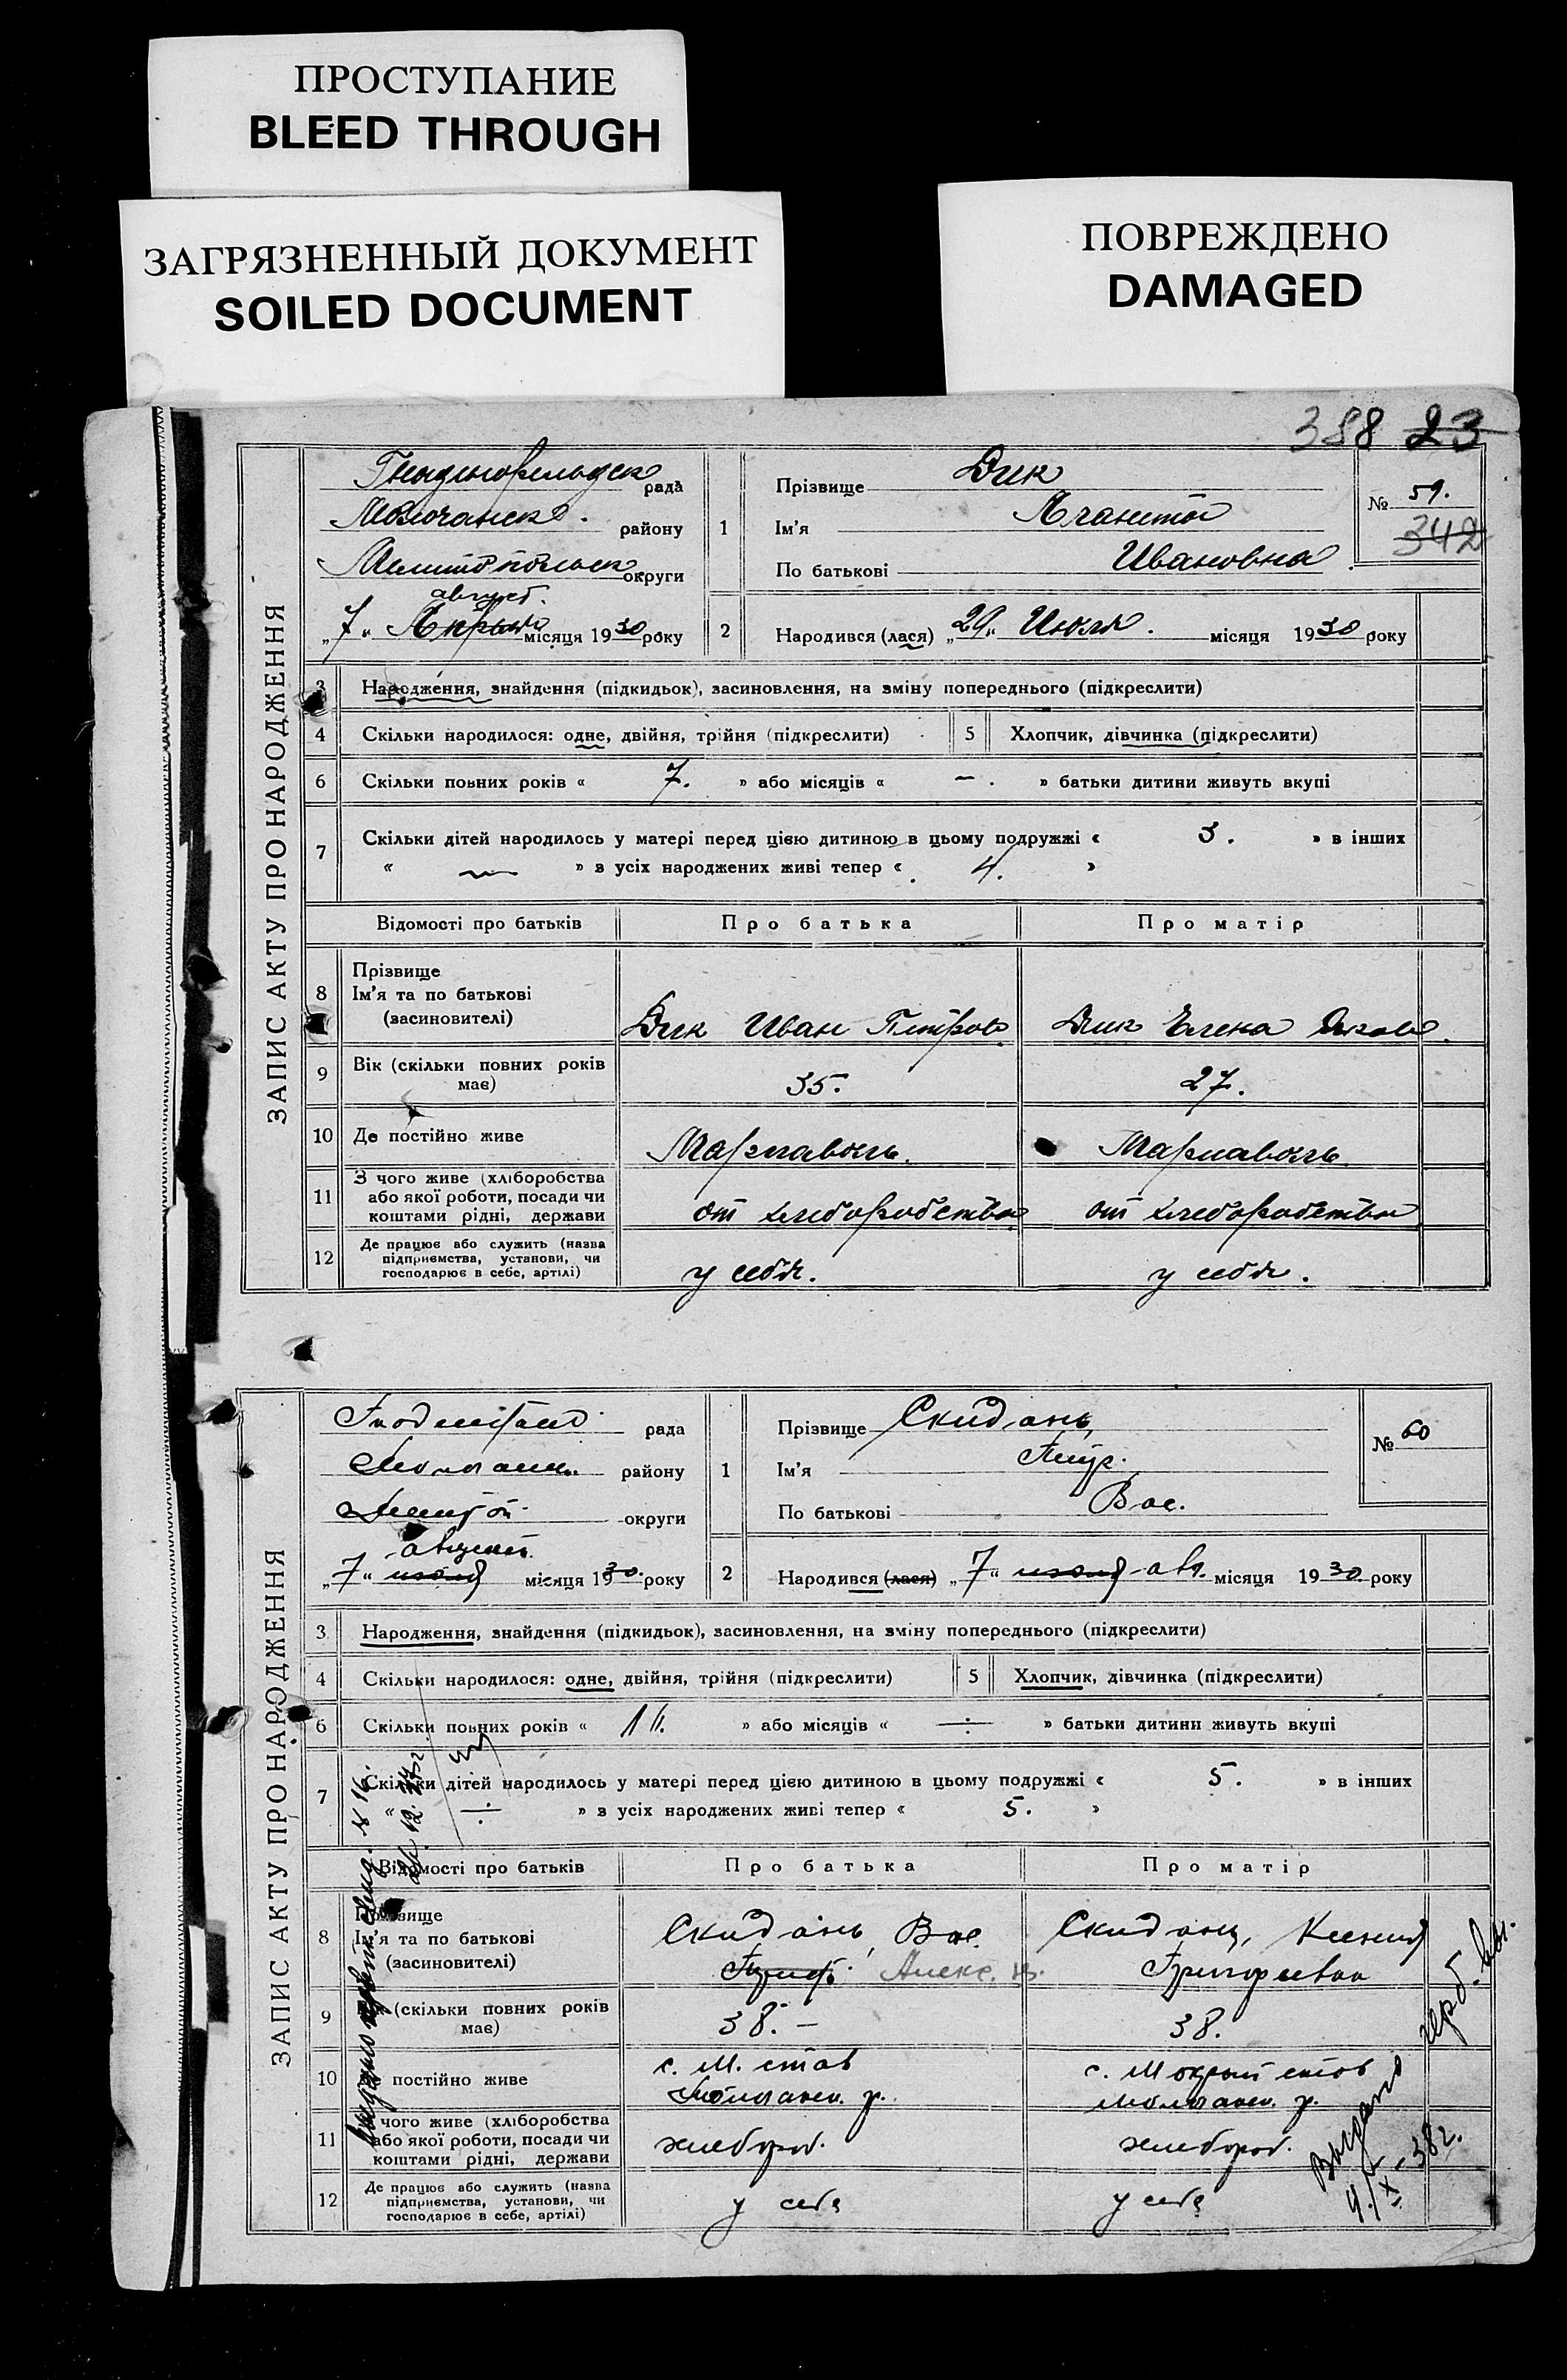 ПРОСТУПАНИЕ
BLEED THROUGH
ЗАГРЯЗНЕННЫЙ ДОКУМЕНТ
SOILED DOCUMENT
ПОВРЕЖДЕНО
DAMAGED
388 23
ЗАПИС АКТУ ПРО НАРОДЖЕННЯ
рада
Молочанск. району
Мелитопольск округи
август.
„7“ місяця 1930 року
1
Прізвище Дик
Ім'я
По батькові Ивановна
№ 59.
342
2
Народився (лася) „29“ Июля. місяця 1930 року
3
Народження, знайдення (підкидьок), засиновлення, на зміну попереднього (підкреслити)
4
Скільки народилося: одне, двійня, трійня (підкреслити)
5
Хлопчик, дівчинка (підкреслити)
6
Скільки повних років « 7. » або місяців « — . » батьки дитини живуть вкупі
7
Скільки дітей народилось у матері перед цією дитиною в цьому подружжі « 3. » в інших
« — » з усіх народжених живі тепер « 4. »
Відомості про батьків
Про батька
Про матір
8
Прізвище
Ім'я та по батькові
(засиновителі)
Дик Иван Петров.
Дик Елена
9
Вік (скільки повних років
має)
35.
27.
10
Де постійно живе
11
З чого живе (хліборобства
або якої роботи, посади чи
коштами рідні, держави
от хлеборобства
от хлеборобства
12
Де працює або служить (назва
підприємства, установи, чи
господарює в себе, артілі)
у себя.
у себя.
ЗАПИС АКТУ ПРО НАРОДЖЕННЯ
рада
району
округи
август.
„7“ июля місяця 1930. року
1
Прізвище Скидань,
Ім'я
По батькові Вас.
№ 60
2
Народився (лася) „7“ июля авг. місяця 1930. року
3
Народження, знайдення (підкидьок), засиновлення, на зміну попереднього (підкреслити)
4
Скільки народилося: одне, двійня, трійня (підкреслити)
5
Хлопчик, дівчинка (підкреслити)
6
Скільки повних років « 11. » або місяців « — » батьки дитини живуть вкупі
7
Скільки дітей народилось у матері перед цією дитиною в цьому подружжі « 5. » в інших
« — » з усіх народжених живі тепер « 5. »
Відомості про батьків
Про батька
Про матір
8
Прізвище
Ім'я та по батькові
(засиновителі)
Скидань, Вас.
Алекс.
Скидань, Ксения
Григорьевна
9
(скільки повних років
має)
38. –
38.
10
постійно живе
с. М. став
Молочанск. р.
с. Мокрый став
Молочанск. р.
11
чого живе (хліборобства
або якої роботи, посади чи
коштами рідні, держави
хлебороб.
хлебороб.
12
Де працює або служить (назва
підприємства, установи, чи
господарює в себе, артілі)
у себя
у себя